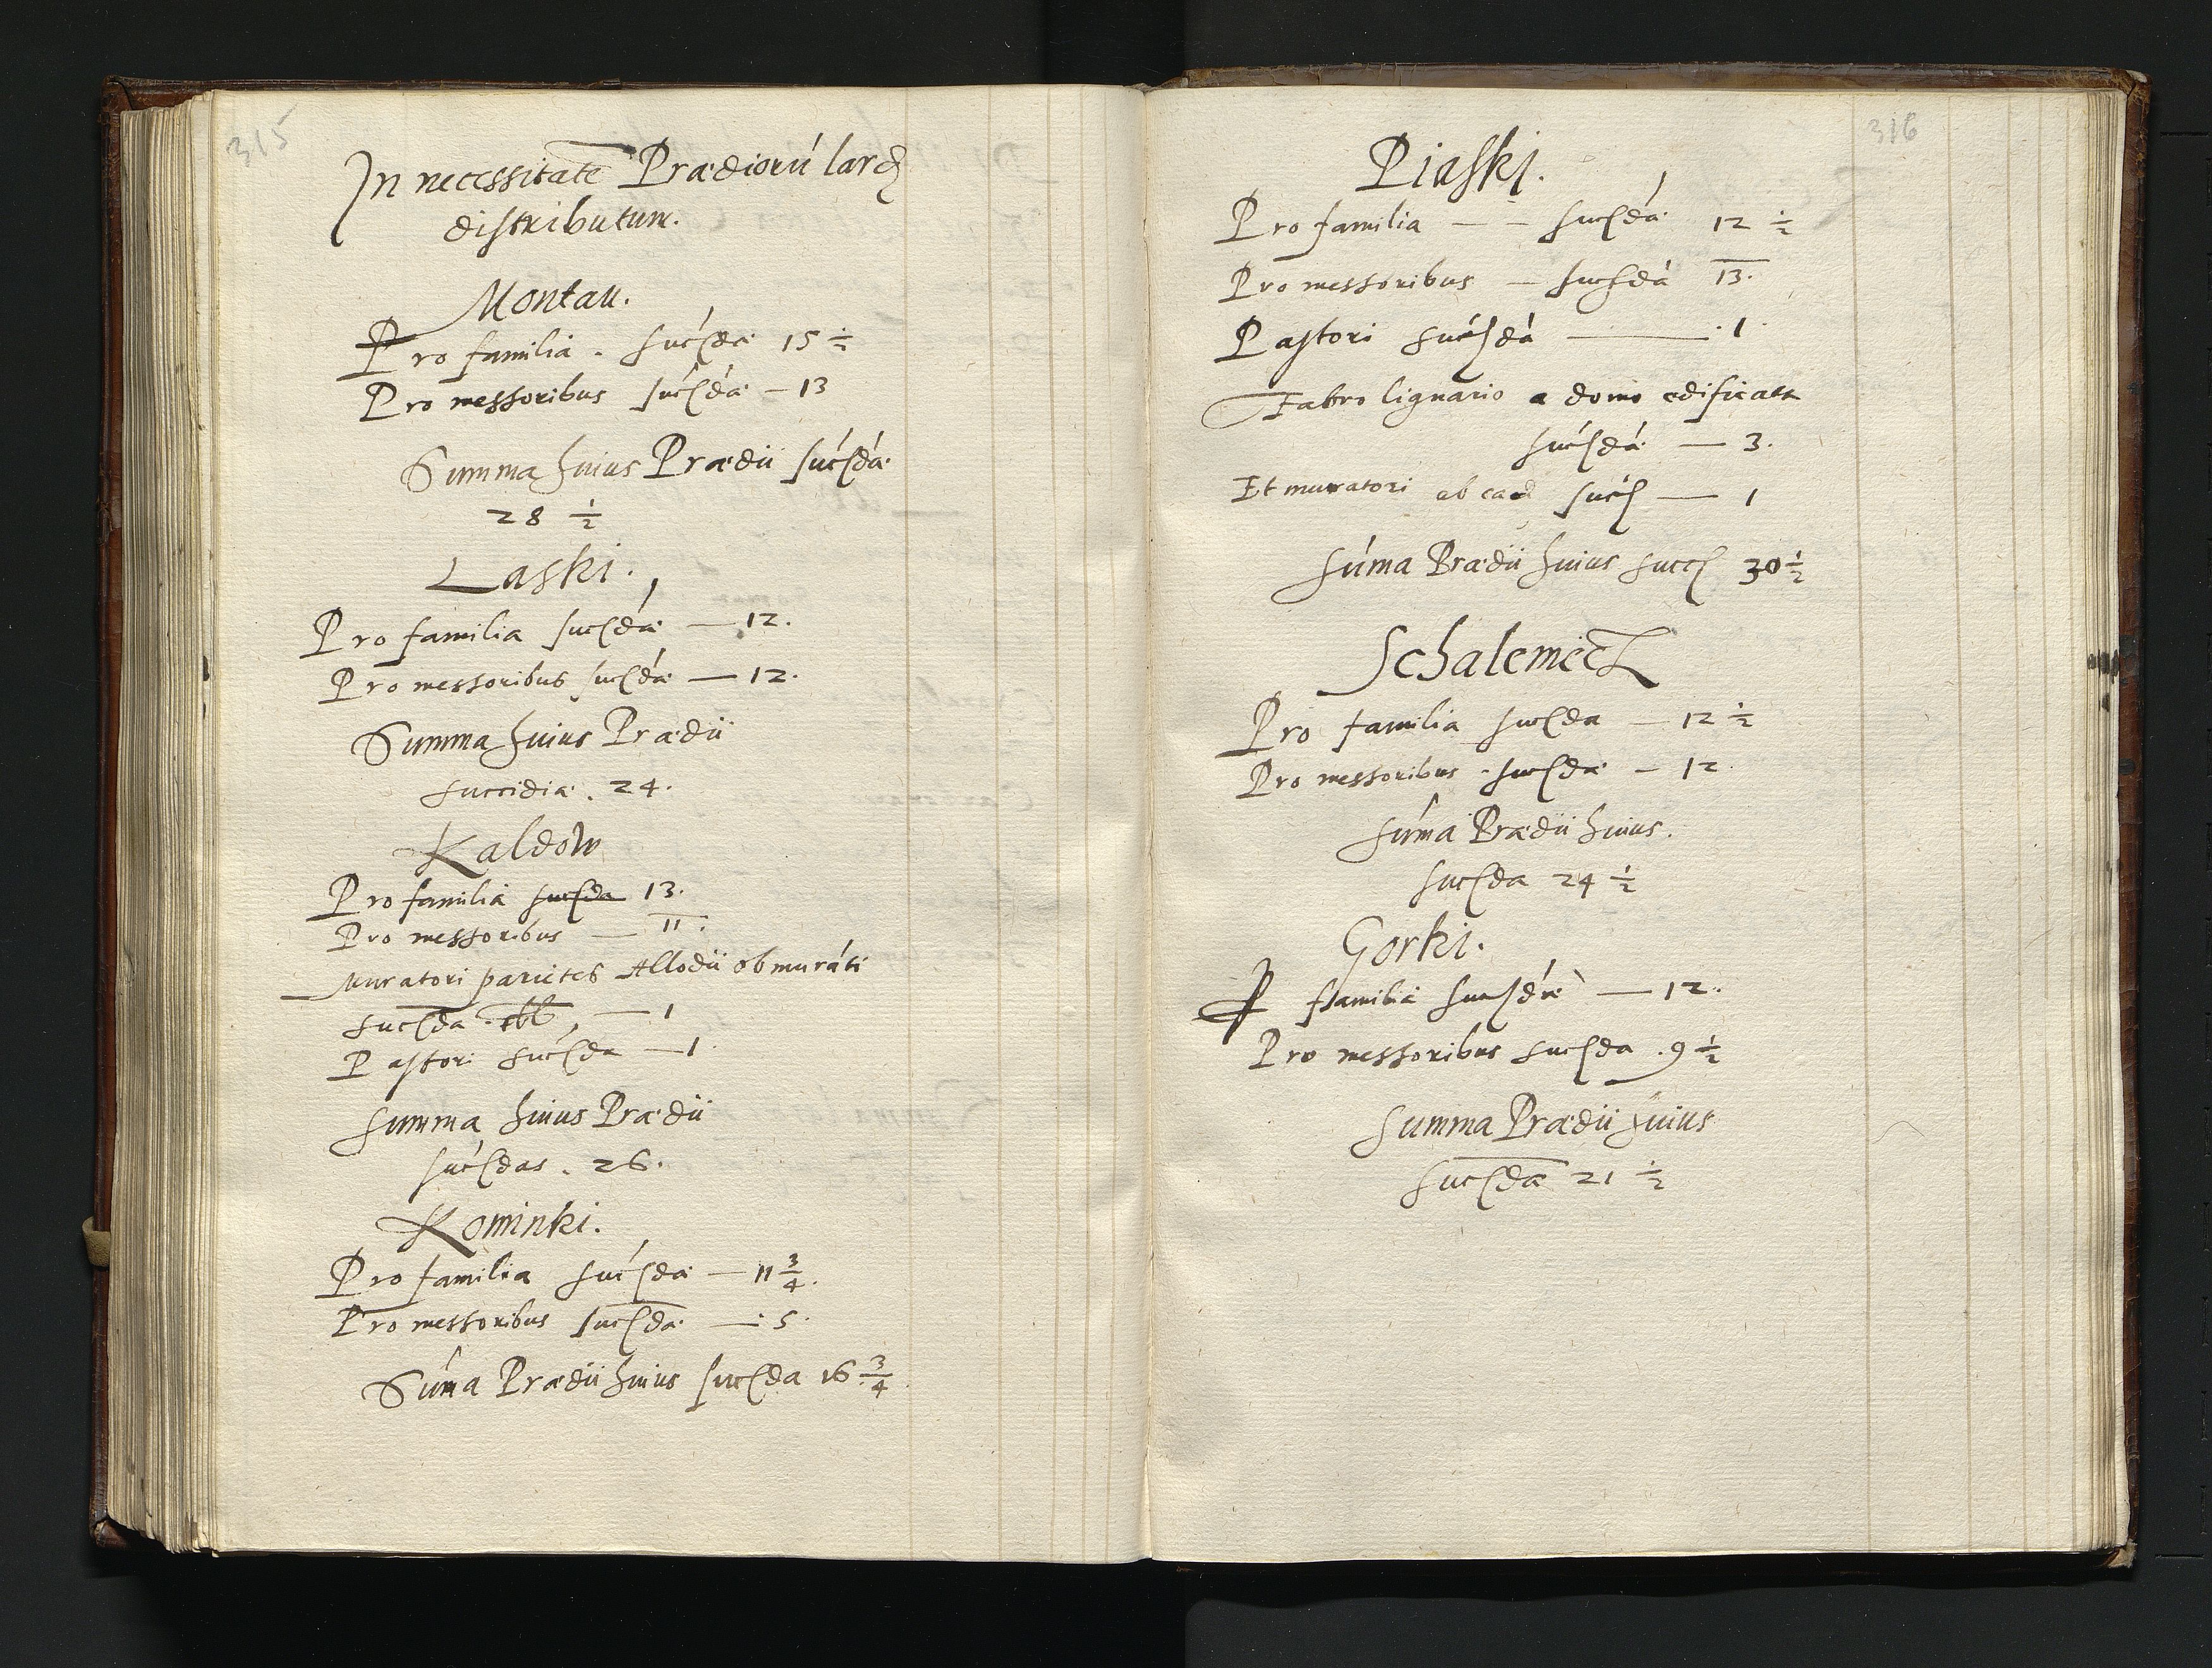 315
In necessitatē Prædiorú lard
distributum.
Montau.
Pro familia. succida 15 ½
Pro messoribus succida — 13
Summa huius Prædii succida
28 ½
Laski.
Pro familia succida — 12.
Pro messoribus succida — 12.
Summa huius Prædii
succidia. 24.
Kaldow
Pro familia succida 13.
Pro messoribus — 11.
Muratori parietes Allodii obmuráti
succida — 1
Pastori succida — 1.
Summa huius Prædii
succidas. 26.
Kominki.
Pro familia succida — 11 ¾.
Pro messoribus succida — 5.
Súma Prædii huius succida 16 ¾
316
Piaski.
Pro familia — – succida 12 ½
Pro messoribus — succida 13.
Pastori succida — 1
Fabro lignario a domo edificata
succida — 3.
Et muratori ab ead succ — 1
Súma Prædii huius succ 30 ½
Schalemect
Pro familia succida — 12 ½
Pro messoribus succida — 12
Súma Prædii huius.
succida 24 ½
Gorki.
P familia succida — 12.
Pro messoribus succida. 9 ½
Summa Prædii huius
succida 21 ½